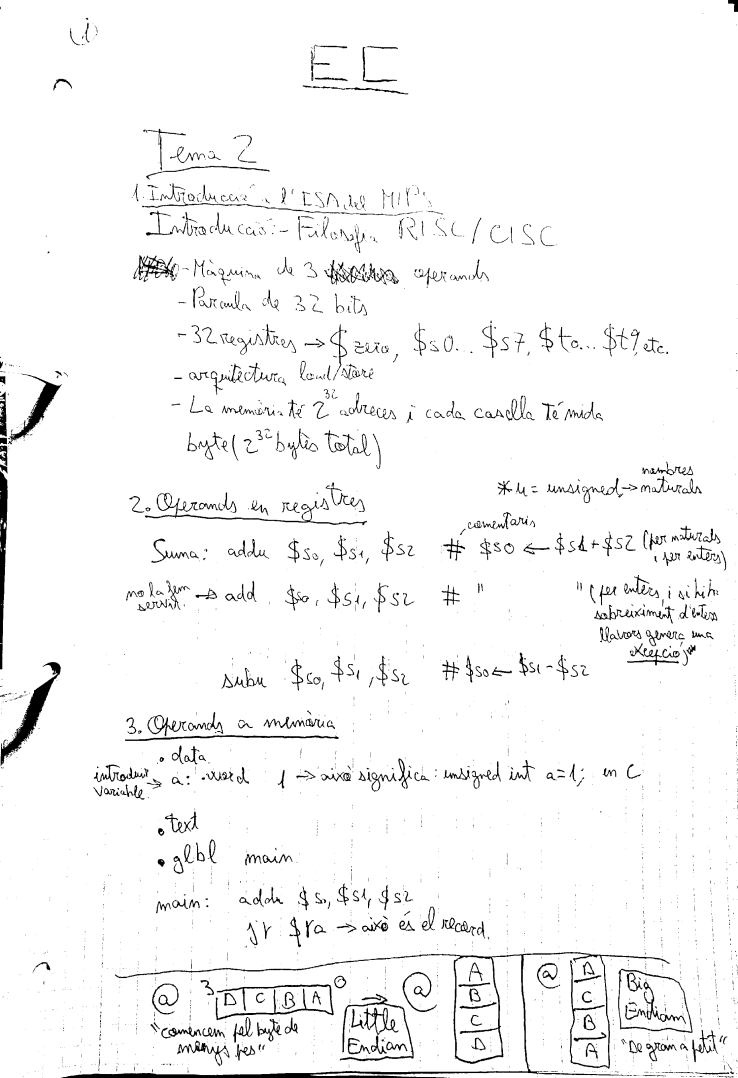 (1)
EC
Tema 2
1. Introducció a l'ISA del MIPS
Introducció: - Filosofia RISC/CISC
- Màquina de 3 operands
- Paraula de 32 bits
- 32 registres → $zero, $s0... $s7, $to... $t9, etc.
- arquitectura load/store
- La memòria té 2^32 adreces i cada casella té mida
byte (2^32 bytes total)
* u = unsigned → nombres naturals
2. Operands en registres
comentaris
Suma: addu $s0, $s1, $s2 # $s0 ← $s1+$s2 (per naturals i per enters)
no la fem servir. → add $s0, $s1, $s2 # " " (per enters, i si hi ha
sobreiximent d'enters
llavors genera una
excepció)*
subu $s0, $s1, $s2 # $s0 ← $s1-$s2
3. Operands a memòria
.data
introduir variable → a: .word 1 → això significa: unsigned int a=1; en C
.text
.glbl main
main: addu $s0, $s1, $s2
jr $ra → això és el record.
@ 3 D C B A 0 → @ A B C D
"comencem pel byte de
menys pes"
Little
Endian
@ D C B A
Big
Endian
"De gran a petit"